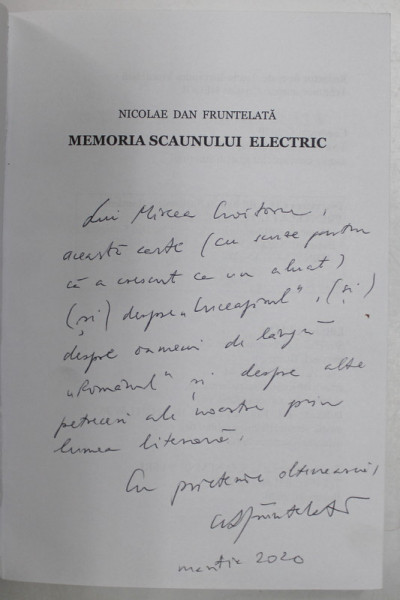 NICOLAE DAN FRUNTELATĂ
MEMORIA SCAUNULUI ELECTRIC
Lui Mircea Croitoru,
această carte (cu scuze pentru
că a crescut ca un aluat)
(și) despre „Luceafărul", (și)
despre oameni de lângă
„Românul" și despre alte
petreceri ale noastre prin
lumea literară.
Cu prietenie oltenească,
martie 2020